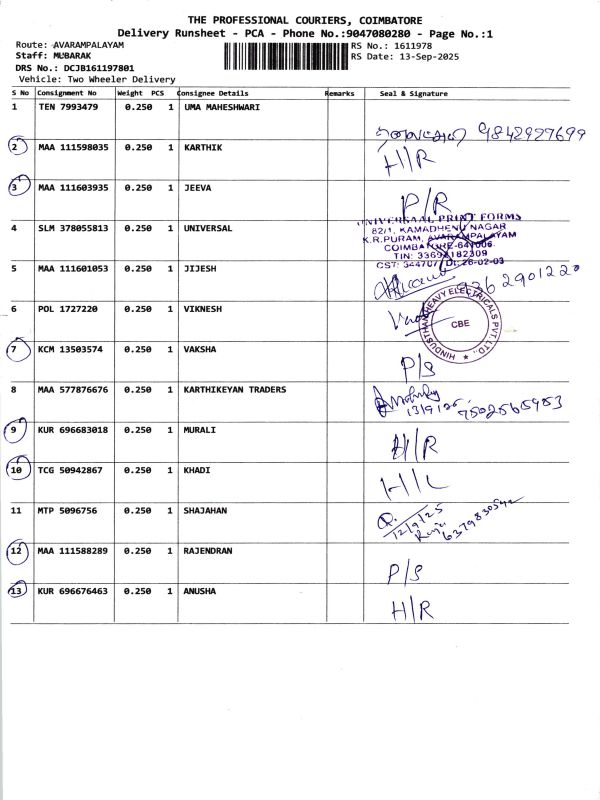 THE PROFESSIONAL COURIERS, COIMBATORE
Delivery Runsheet - PCA - Phone No.:9047080280 - Page No.:1
Route: AVARAMPALAYAM RS No.: 1611978
Staff: MUBARAK RS Date: 13-Sep-2025
DRS No.: DCJB161197801
Vehicle: Two Wheeler Delivery
S No Consignment No Weight PCS Consignee Details Remarks Seal & Signature
1 TEN 7993479 0.250 1 UMA MAHESHWARI
9842927699
2 MAA 111598035 0.250 1 KARTHIK H/R
3 MAA 111603935 0.250 1 JEEVA P/R
4 SLM 378055813 0.250 1 UNIVERSAL
UNIVERSAAL PRINT FORMS
82/1, KAMADHENU NAGAR
K.R.PURAM, AVARAMPALAYAM
COIMBATORE-641006
TIN: 33692182309
CST: 344707 / Dt: 26-02-03
5 MAA 111601053 0.250 1 JIJESH 9362901220
6 POL 1727220 0.250 1 VIKNESH
HINDUSTHAN HEAVY ELECTRICALS PVT LTD.,
CBE
7 KCM 13503574 0.250 1 VAKSHA P/S
8 MAA 577876676 0.250 1 KARTHIKEYAN TRADERS
13/9/25
9 KUR 696683018 0.250 1 MURALI H/R
10 TCG 50942867 0.250 1 KHADI H/L
11 MTP 5096756 0.250 1 SHAJAHAN
12/9/25
12 MAA 111588289 0.250 1 RAJENDRAN P/S
13 KUR 696676463 0.250 1 ANUSHA H/R